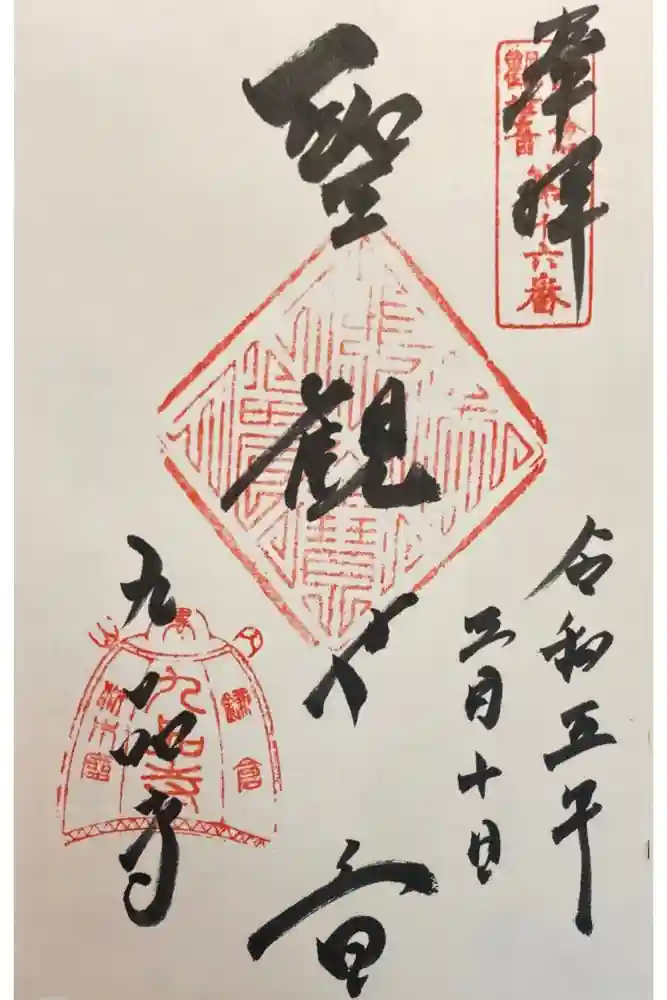 奉拝
鎌倉
觀音
第十六番
令和五年
三月十日
聖観世音
九品寺
鎌倉
九品寺
材木座